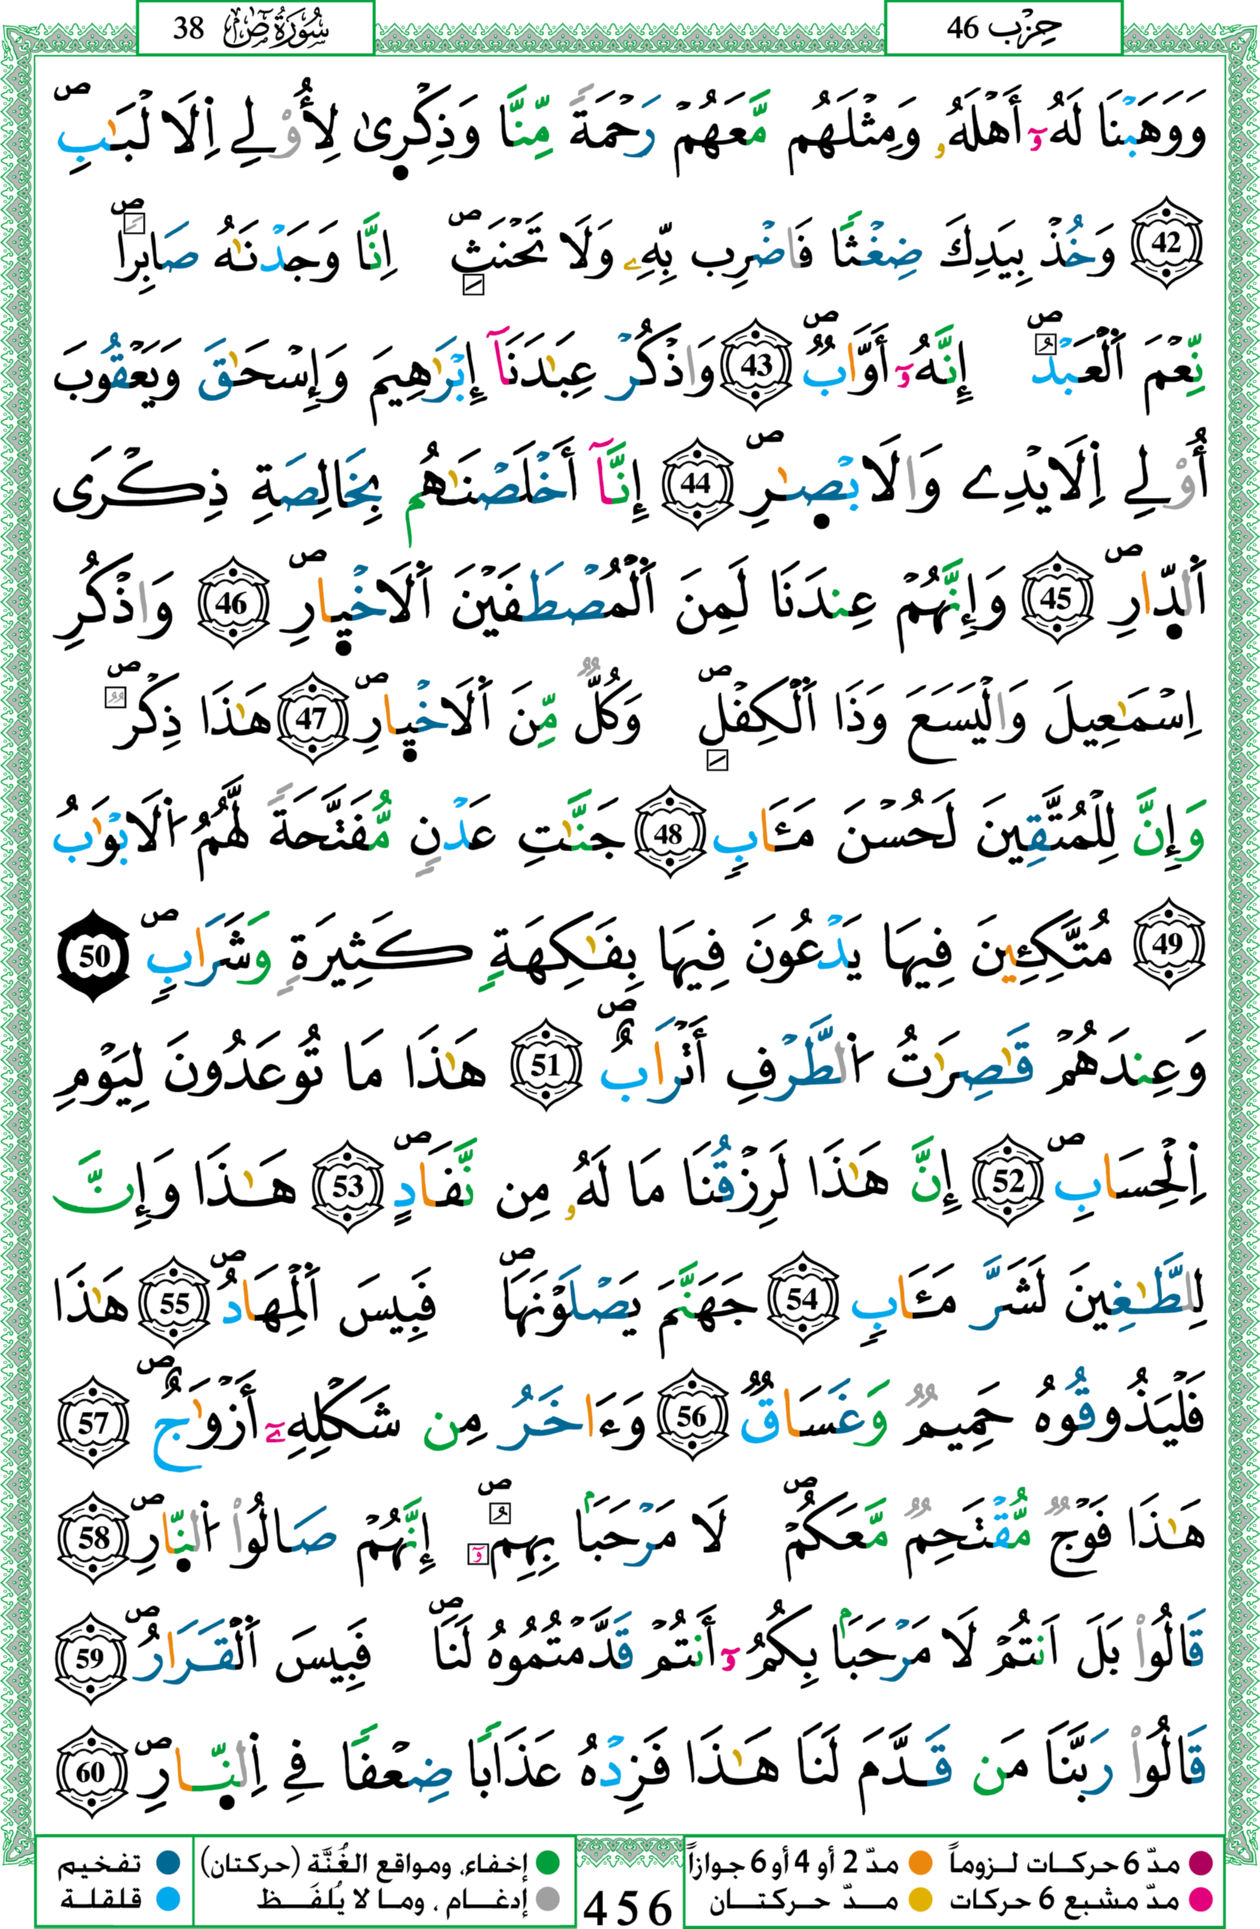 سُورَةُ صٓ 38
حِزْب 46
وَوَهَبْنَا لَهُۥٓ أَهْلَهُۥ وَمِثْلَهُم مَّعَهُمْ رَحْمَةً مِّنَّا وَذِكْرِىٰ لِأُوْلِے اِ۬لَالْبَٰبِۖ
42 وَخُذْ بِيَدِكَ ضِغْثًا فَاضْرِب بِّهِۦ وَلَا تَحْنَثِۖ اِنَّا وَجَدْنَٰهُ صَابِرًاۖ
نِّعْمَ اَ۬لْعَبْدُۖ إِنَّهُۥٓ أَوَّابٌۖ 43 وَاذْكُرْ عِبَٰدَنَآ إِبْرَٰهِيمَ وَإِسْحَٰقَ وَيَعْقُوبَ
أُوْلِے اِ۬لَايْدِے وَالَابْصٰ۪رِۖ 44 إِنَّآ أَخْلَصْنَٰهُم بِخَالِصَةِ ذِكْرَى
اَ۬لدّ۪ارِۖ 45 وَإِنَّهُمْ عِندَنَا لَمِنَ اَ۬لْمُصْطَفَيْنَ اَ۬لَاخْي۪ارِۖ 46 وَاذْكُرِ
اِسْمَٰعِيلَ وَالْيَسَعَ وَذَا اَ۬لْكِفْلِۖ وَكُلٌّ مِّنَ اَ۬لَاخْي۪ارِۖ 47 هَٰذَا ذِكْرٌۖ
وَإِنَّ لِلْمُتَّقِينَ لَحُسْنَ مَـَٔابٍ 48 جَنَّٰتِ عَدْنٍ مُّفَتَّحَةً لَّهُمُ اُ۬لَابْوَٰبُ
49 مُتَّكِـِٔينَ فِيهَا يَدْعُونَ فِيهَا بِفَٰكِهَةٍ كَثِيرَةٍ وَشَرَابٍۖ 50
وَعِندَهُمْ قَٰصِرَٰتُ اُ۬لطَّرْفِ أَتْرَابٌۖ 51 هَٰذَا مَا تُوعَدُونَ لِيَوْمِ
اِ۬لْحِسَابِۖ 52 إِنَّ هَٰذَا لَرِزْقُنَا مَا لَهُۥ مِن نَّفَادٍۖ 53 هَٰذَا وَإِنَّ
لِلطَّٰغِينَ لَشَرَّ مَـَٔابٍ 54 جَهَنَّمَ يَصْلَوْنَهَاۖ فَبِيسَ اَ۬لْمِهَادُۖ 55 هَٰذَا
فَلْيَذُوقُوهُ حَمِيمٌ وَغَسَاقٌ 56 وَءَاخَرُ مِن شَكْلِهِۦٓ أَزْوَٰجٌۖ 57
هَٰذَا فَوْجٌ مُّقْتَحِمٌ مَّعَكُمْۖ لَا مَرْحَبًا بِهِمُۥٓۖ إِنَّهُمْ صَالُواْ اُ۬لنّ۪ارِۖ 58
قَالُواْ بَلَ اَنتُمْ لَا مَرْحَبًا بِكُمُۥٓ أَنتُمْ قَدَّمْتُمُوهُ لَنَاۖ فَبِيسَ اَ۬لْقَرَارُۖ 59
قَالُواْ رَبَّنَا مَن قَدَّمَ لَنَا هَٰذَا فَزِدْهُ عَذَابًا ضِعْفًا فِے اِ۬لنّ۪ارِۖ 60
مدّ 6 حركات لـزوماً مدّ 2 أو 4 أو 6 جوازاً
مدّ مشبع 6 حركات مــدّ حركتــان
456
إخفاء، ومواقع الغُنَّة (حركتان) تفخيم
إدغـام ، ومـا لا يُلفَـظ قلقلـة